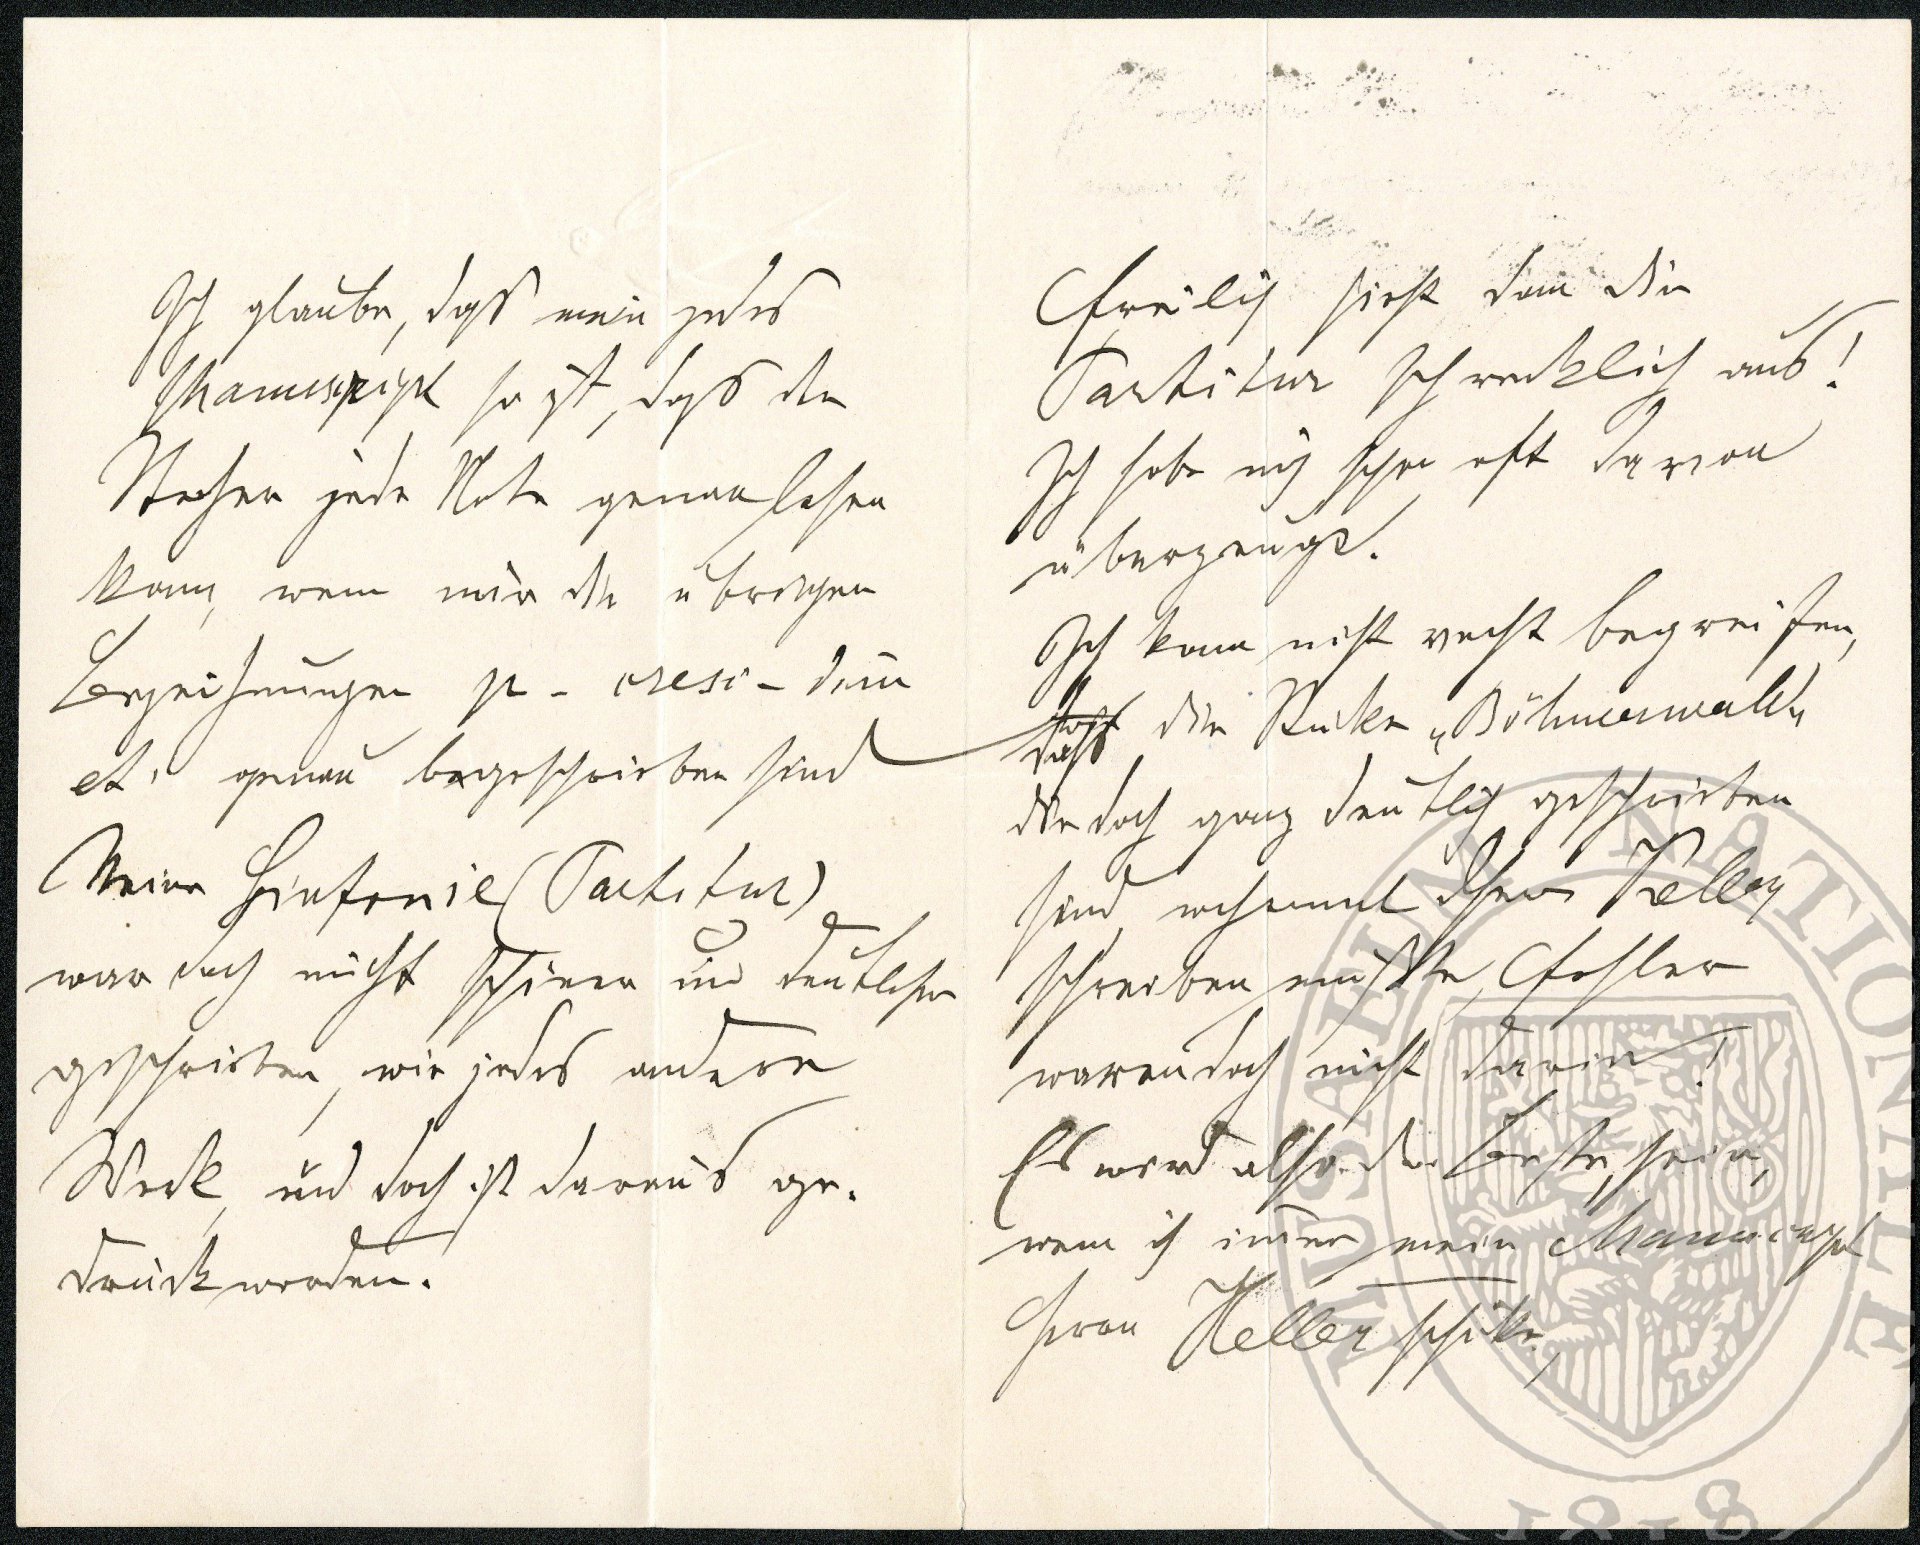 Ich glaube, dass mein jedes
Manuscript so ist, dass der
Stecher jede Note genau lesen
kann, wenn nur die übrigen
Bezeichnungen p – cresc – dim
etc genau begeschrieben sind
Meine Sinfonie (Partitur)
war doch nicht schöner und deutlicher
geschrieben, wie jedes andere
Werk, und doch ist daraus ge-
druckt worden.
Freilich sieht dann die
Partitur schrecklich aus!
Ich habe mich schon oft davon
überzeugt.
Ich kann nicht recht begreifen,
dass die Stücke „Böhmerwald"
die doch ganz deutlich geschrieben
sind, noch einmal Keller
schreiben musste, Fehler
waren doch nicht darin!
Es wird also das Beste sein,
wenn ich immer mein Manuscript
Herrn Keller schicke,
MUSAEUM NATIONALE
1818